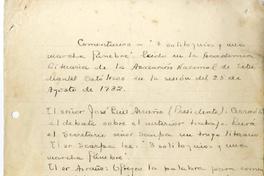 Comentarios a "3 soliloquios y una
marcha fúnebre", leído en la Academia
Literaria de la Asociación Nacional de
en la sesión del 25 de
Agosto de 1932.
El señor José Luis Araño (Presidente): Cerrado
el debate sobre el anterior trabajo, lleva
el Secretario señor Scarpa un trago literario
El sr Scarpa lee: "3 soliloquios y una
marcha fúnebre"
El sr Araño: Ofrezco la palabra para